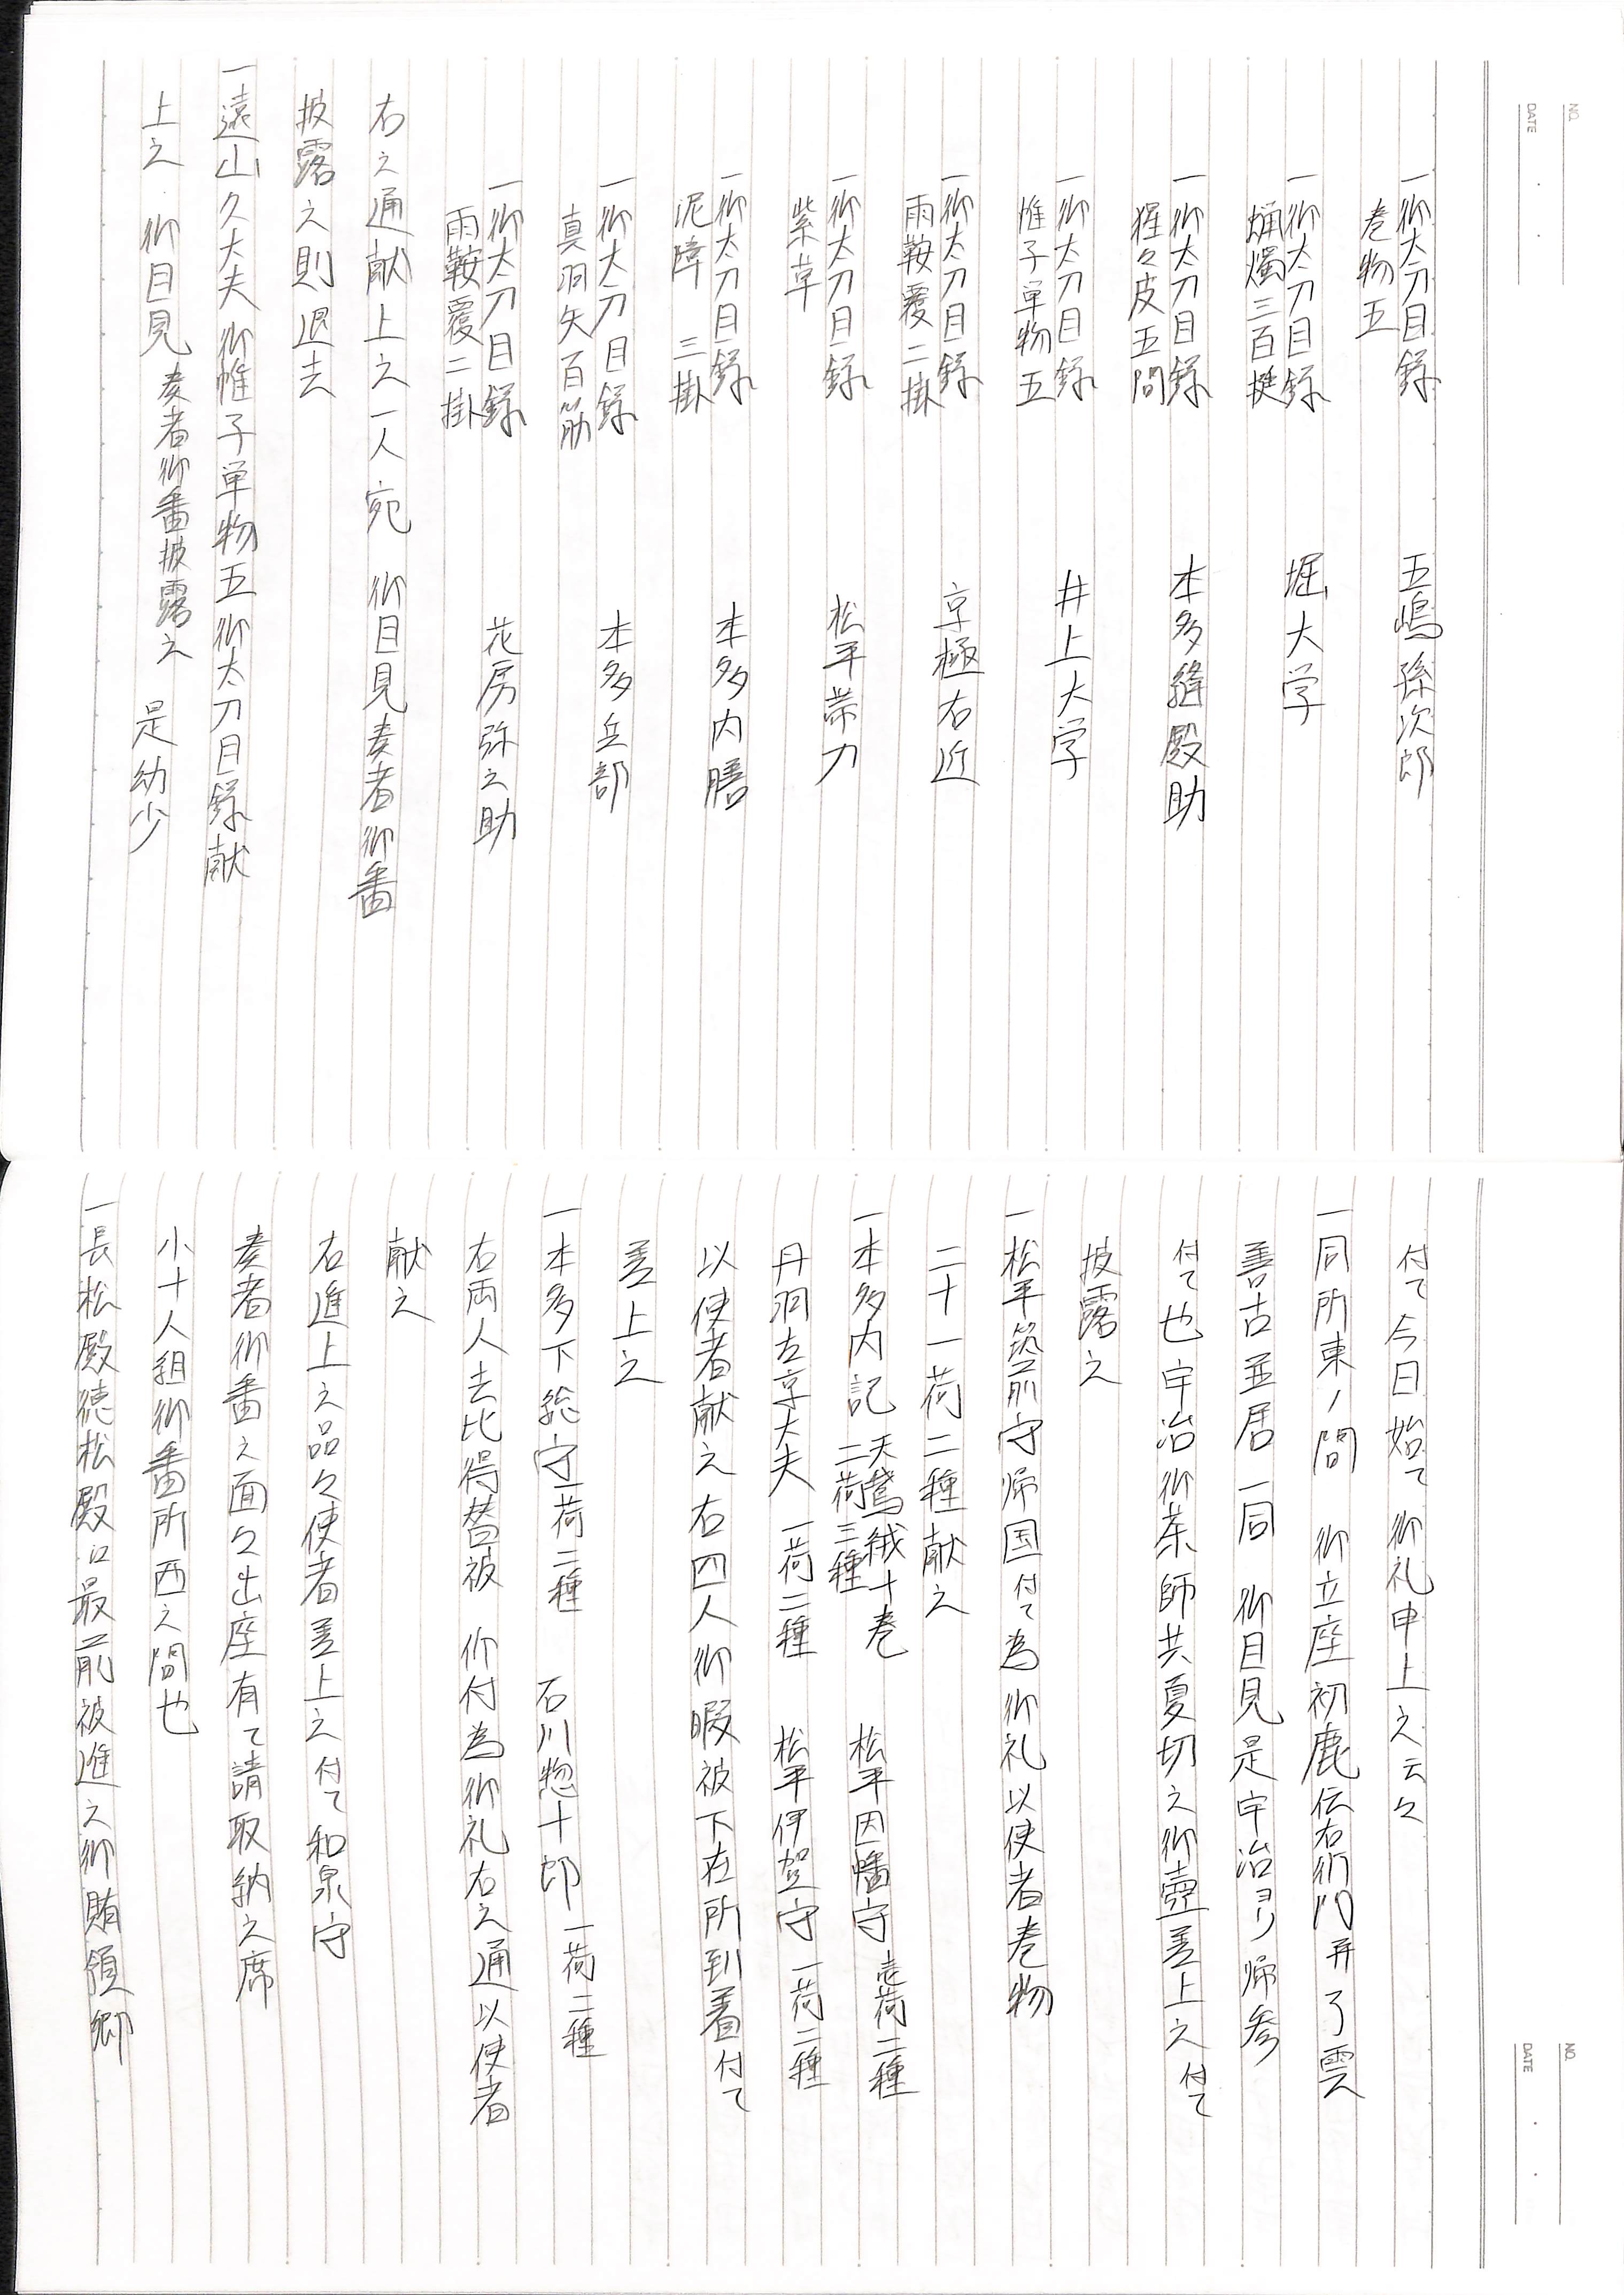 NO.
DATE
一御太刀目録　五嶋孫次郎
巻物五
一御太刀目録　堀大学
蝋燭三百挺
一御太刀目録　本多縫殿助
猩々皮五間
一御太刀目録　井上大学
帷子単物五
一御太刀目録　京極右近
雨鞍覆二掛
一御太刀目録　松平帯刀
紫革
一御太刀目録　本多内膳
泥障　三掛
一御太刀目録　本多兵部
真羽矢百筋
一御太刀目録　花房弥之助
雨鞍覆二掛
右之通献上之一人宛　御目見奏者御番
披露之則退去
一遠山久大夫御帷子単物五御太刀目録献
上之　御目見奏者御番披露之　是幼少
NO.
DATE
付て今日始て　御礼申上之云々
一同所東ノ間　御立座初鹿伝右衛門并了雲
善古並居一同　御目見是宇治ヨリ帰参
付て也宇治御茶師共夏切之御壺差上之付て
披露之
一松平筑前守帰国付て為御礼以使者巻物
二十一荷二種献之
一本多内記　天鵞絨十巻　二荷三種　松平因幡守　壱荷二種
丹羽左京大夫　一荷二種　松平伊賀守　一荷二種
以使者献之右四人御暇被下在所到着付て
差上之
一本多下総守一荷二種　石川惣十郎　一荷二種
右両人去比得替被　仰付為御礼右之通以使者
献之
右進上之品々使者差上之付て和泉守
奏者御番之面々出座有て請取納之席
小十人組御番所西之間也
一長松殿徳松殿江最前被進之御賄領郷